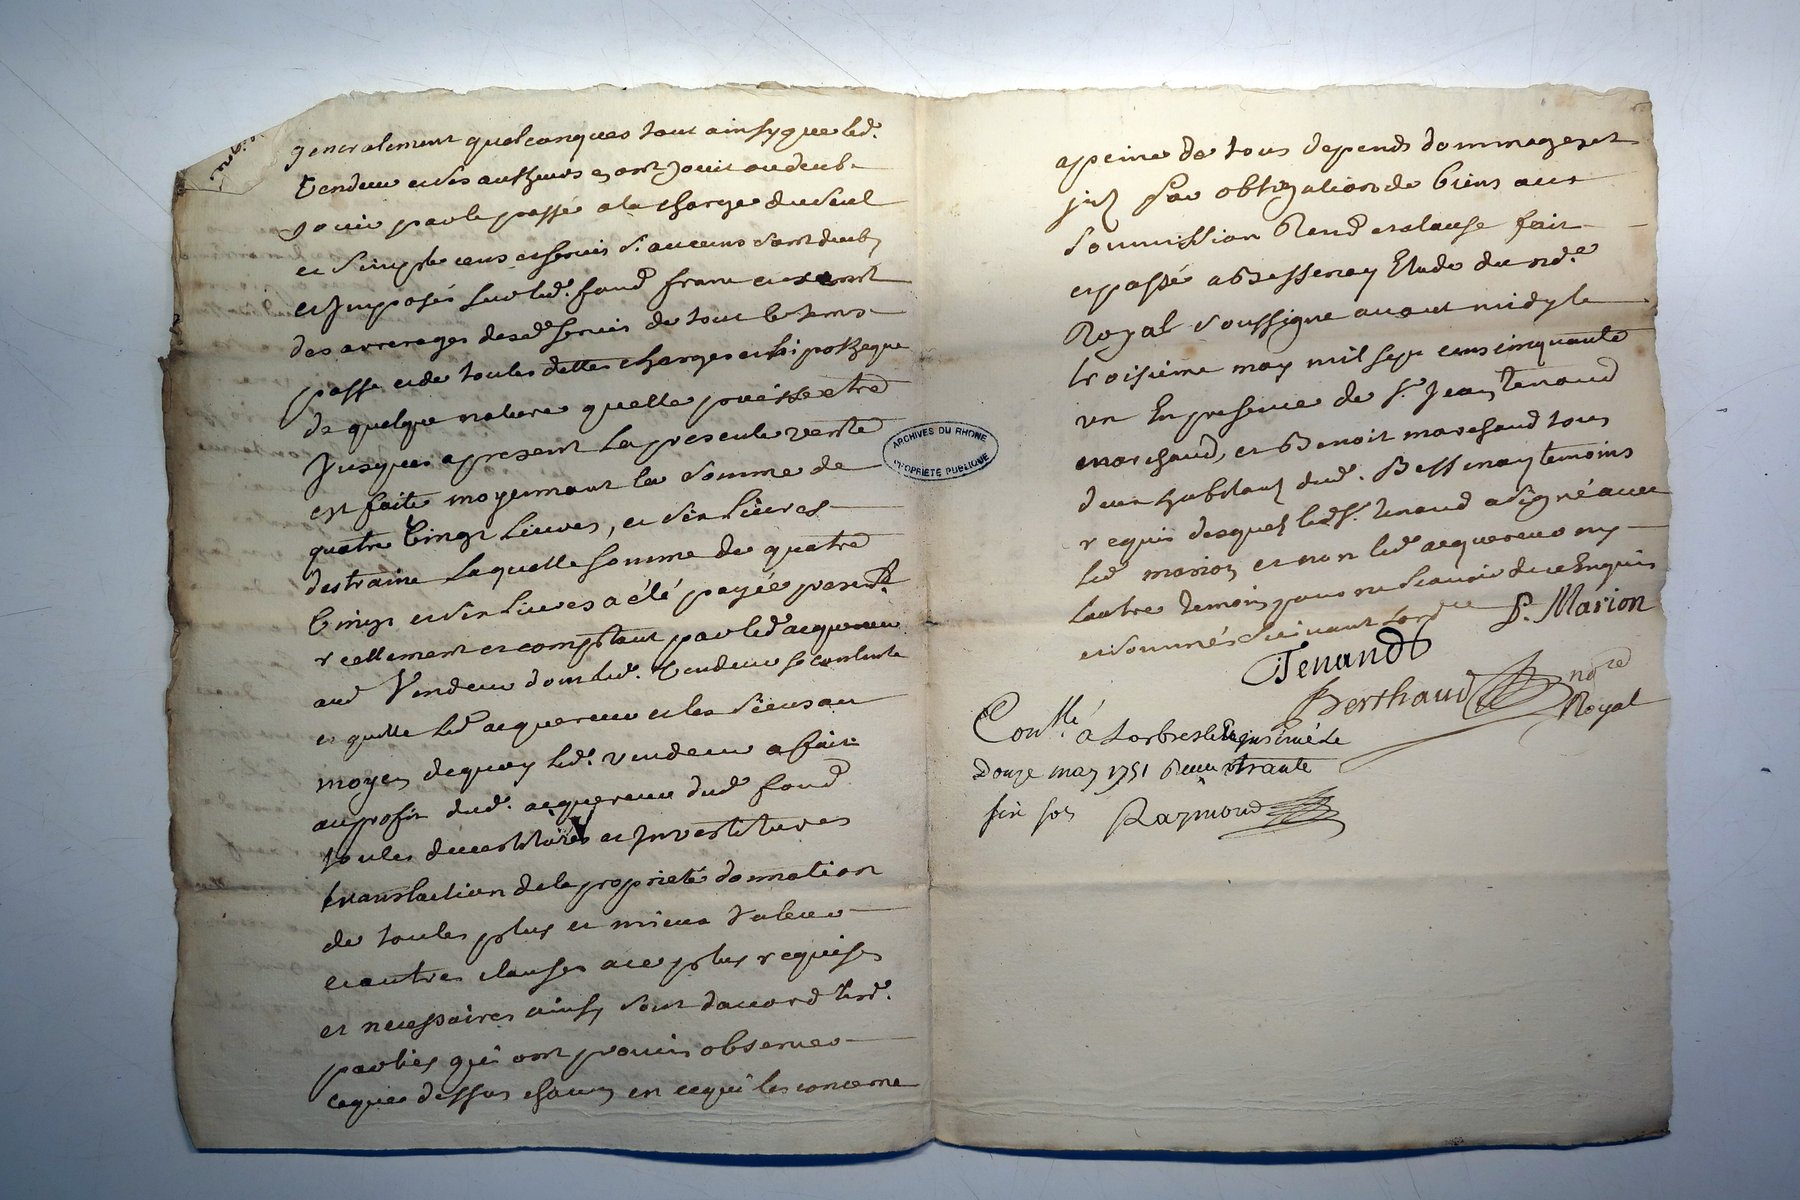 generalement quelconques tout ainsy que led.
Vendeur et ses autheurs en ont Jouit ou deub
Jouir par le passé a la charge du seul
et simple cens et servis sy aucuns sont deub
et Imposés sur led. fond franc et exempt
des arrerages desd. servis de tout le tems
passe et de toutes dettes charges et hipotheque
de quelque nature quelle puisse etre
Jusques apresent La presente vente
est faite moyennant la somme de
quatre Vingt Livres, et six Livres
destraine Laquelle somme de quatre
Vingt et six Livres a été payée presentt.
reellement et comptant par led acquereur
aud Vendeur dont led. Vendeur se contente
et quitte led acquereur et les siens au
moyen dequoy led. vendeur a fait
au profit dud. acquereur dud fond
toutes devestitures et Investitures
translation de la proprieté donnation
de toutes plus et mieux valeur
et autres clauses a ce plus requises
et necessaires ainsy sont daccord lesd.
parties qui ont promis observer
ce que dessus chacun en ce qui les concerne
a peine de tous depends dommages et
Par obligation de biens aux
soummission Rend et clause fait
et passé a Bessenay Etude du nd.e
Royal soussigne avant midy le
troisieme may mil sept cens cinquante
un En presence de sr. Jean Tenaud
marchand, et Benoit marchand tous
deux habitants dud. Bessenay temoins
requis desquels led sr. Tenaud a signé avec
led marion et non led acquereur ny
lautre temoin pour ne scavoir de ce Enquis
et sommés suivant Lordce P. Marion
Tenaud
Berthaud nore
Royal
Conlle à Larbresle et
Douze may 1751 Reçu trante
six sols Raymond
ARCHIVES DU RHONE
PROPRIÉTÉ PUBLIQUE